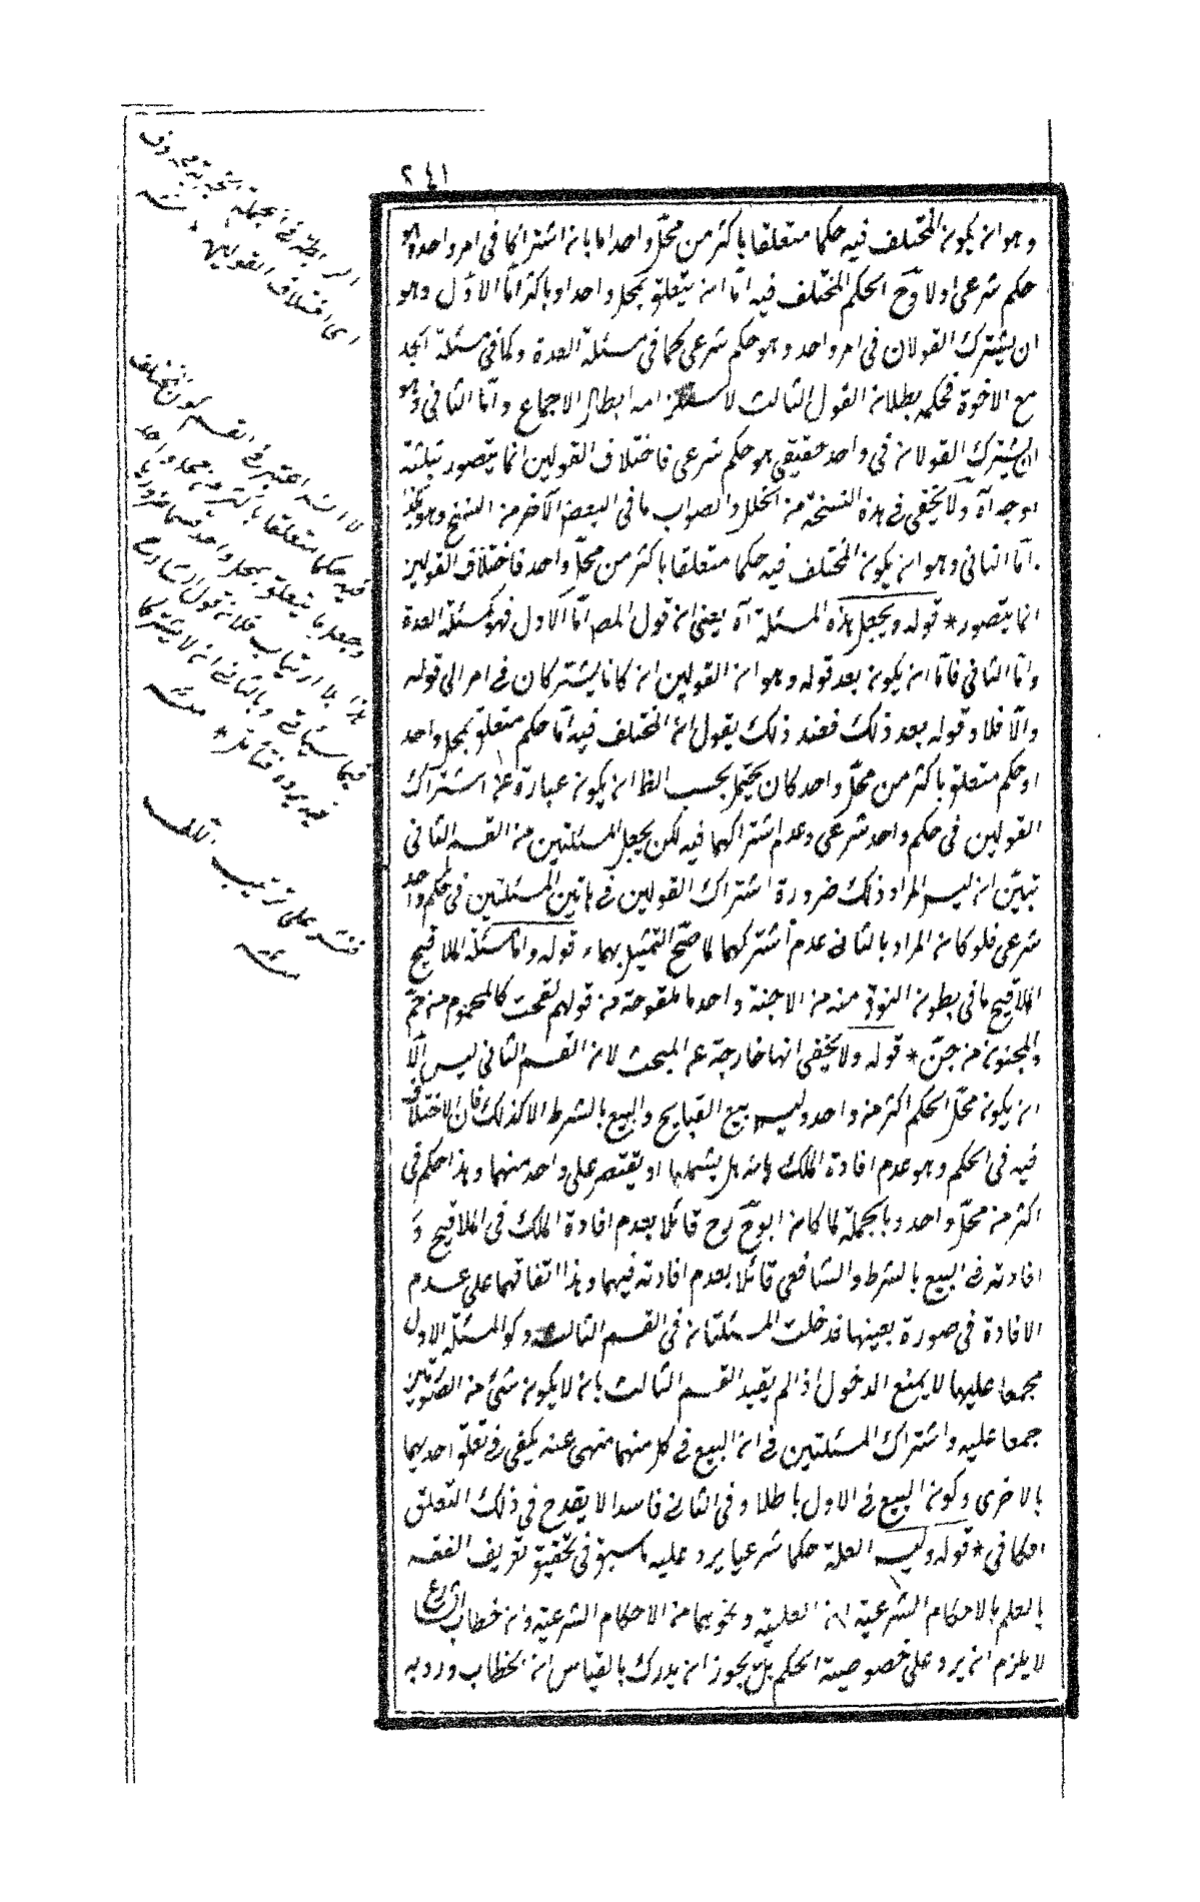 ٢٤١
وهو ان يكون المختلف فيه حكما متعلقا باكثر من محل واحد اما بان اشتركا في امر واحد هو
حكم شرعي اولا وح الحكم المختلف فيه اما ان يتعلق بمحل واحد او باكثر اما الاول وهو
ان يشترك القولان في امر واحد وهو حكم شرعي كما في مسئلة العدة وكما في مسئلة الجد
مع الاخوة فحكمه بطلان القول الثالث لاستلزامه ابطال الاجماع واما الثاني وهو
ان يشترك القولان في واحد حقيقي هو حكم شرعي فاختلاف القولين انما يتصور بثلثة
اوجه آه ولا يخفى في هذه النسخة من الخلل والصواب ما في البعض الآخر من النسخ وهو هكذا
اما الثاني وهو ان يكون المختلف فيه حكما متعلقا باكثر من محل واحد فاختلاف القولين
انما يتصور * قوله ويجعل هذه المسئلة آه يعني ان قول المص اما الاول فهو كمسئلة العدة
واما الثاني فاما ان يكون بعد قوله وهو ان القولين ان كانا يشتركان في امر الى قوله
والا فلا وقوله بعد ذلك فعند ذلك يقول ان المختلف فيه اما حكم متعلق بمحل واحد
او حكم متعلق باكثر من محل واحد كان يحتمل بحسب الظ ان يكون عبارة عن اشتراك
القولين في حكم واحد شرعي وعدم اشتراكهما فيه لكن يجعل المسئلتين من القسم الثاني
تبين ان ليس المراد ذلك ضرورة اشتراك القولين في هاتين المسئلتين في حكم واحد
شرعي فلو كان المراد بالثاني عدم اشتراكهما لما صح التمثيل بهما * قوله واما مسئلة الملاقيح
الملاقيح ما في بطون النوق منه من الاجنة واحدها ملقوحة من قولهم لقحت كالمحموم من حم
والمجنون من جن * قوله ولا يخفى انها خارجة عن المبحث لان القسم الثاني ليس الا
ان يكون محل الحكم اكثر من واحد وليس بيع القبايح والبيع بالشرط الا كذلك فان الاختلاف
فيه في الحكم وهو عدم افادة الملك بانه هل يشملها او يقتصر على واحد منهما وهذا حكم في
اكثر من محل واحد وبالجملة لما كان ابو ح رح قائلا بعدم افادة الملك في الملاقيح و
افادته في البيع بالشرط والشافعي قائلا بعدم افادته فيهما وهذا اتفاقهما على عدم
الافادة في صورة بعينها قد خلت المسئلتان في القسم الثالث وكو المسئلة الاول
مجمعا عليها لا يمنع الدخول اذ لم يقيد القسم الثالث بان لا يكون شئ من الصورتين
جمعا عليه واشتراك المسئلتين في ان البيع في كل منهما منهي عنه يكفي في تعلق احديهما
بالاخرى وكون البيع في الاول باطلا وفي الثاني فاسدا لا يقدح في ذلك التعلق
الكافي * قوله وليس العلة حكما شرعيا يرد عليه ما سبق في تحقيق تعريف الفقه
بالعلم بالاحكام الشرعية ان العلية ونحوهما من الاحكام الشرعية وان خطاب الشارع
لا يلزم ان يرد على خصوصية الحكم بل يجوز ان يدرك بالقياس ان الخطاب ورد به
الرابطة في الجملة
اى اختلاف القولين * منه
لا انه اعتبر في القسم كون المختلف
فيه حكما متعلقا باكثر من محل واحد
وجعله ما يتعلق بمحل واحد قسما
هذا بلا ارتياب فلان قول الشارح
فيما سيأتي وبالثاني ان لا يشتركا
فيه يرده فتأمل * منه